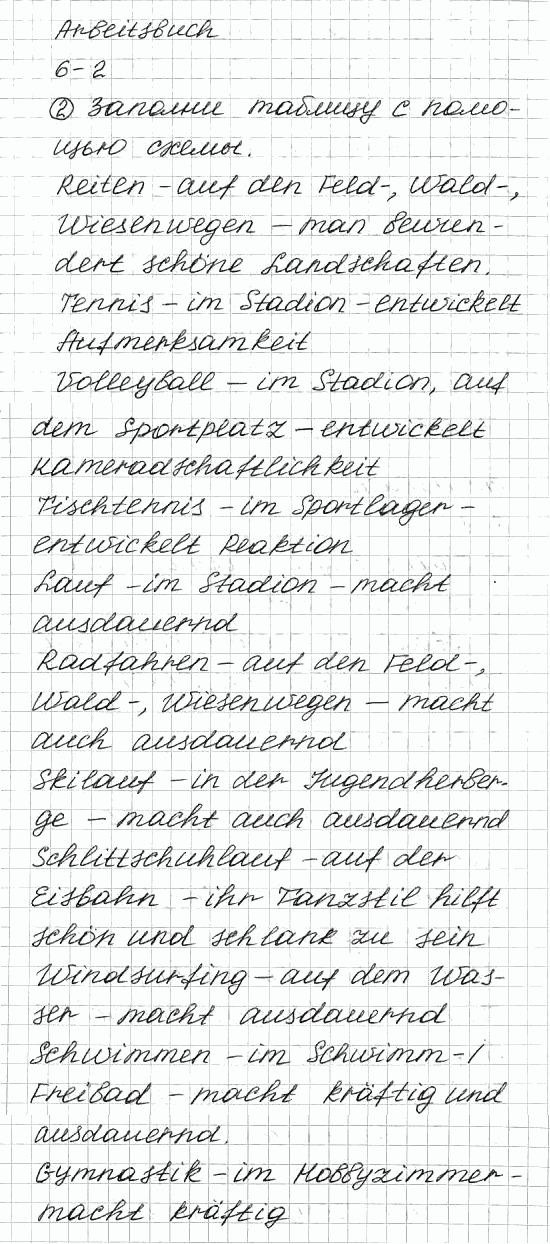 Arbeitsbuch
6-2
② Заполни таблицу с помо-
щью схемы.
Reiten – auf den Feld-, Wald-,
Wiesenwegen – man bewun-
dert schöne Landschaften.
Tennis – im Stadion – entwickelt
Aufmerksamkeit
Volleyball – im Stadion, auf
dem Sportplatz – entwickelt
Kameradschaftlichkeit
Tischtennis – im Sportlager –
entwickelt Reaktion
Lauf – im Stadion – macht
ausdauernd
Radfahren – auf den Feld-,
Wald-, Wiesenwegen – macht
auch ausdauernd
Skilauf – in der Jugendherber-
ge – macht auch ausdauernd
Schlittschuhlauf – auf der
Eisbahn – ihr Tanzstil hilft
schön und schlank zu sein
Windsurfing – auf dem Was-
ser – macht ausdauernd
Schwimmen – im Schwimm-/
Freibad – macht kräftig und
ausdauernd.
Gymnastik – im Hobbyzimmer –
macht kräftig